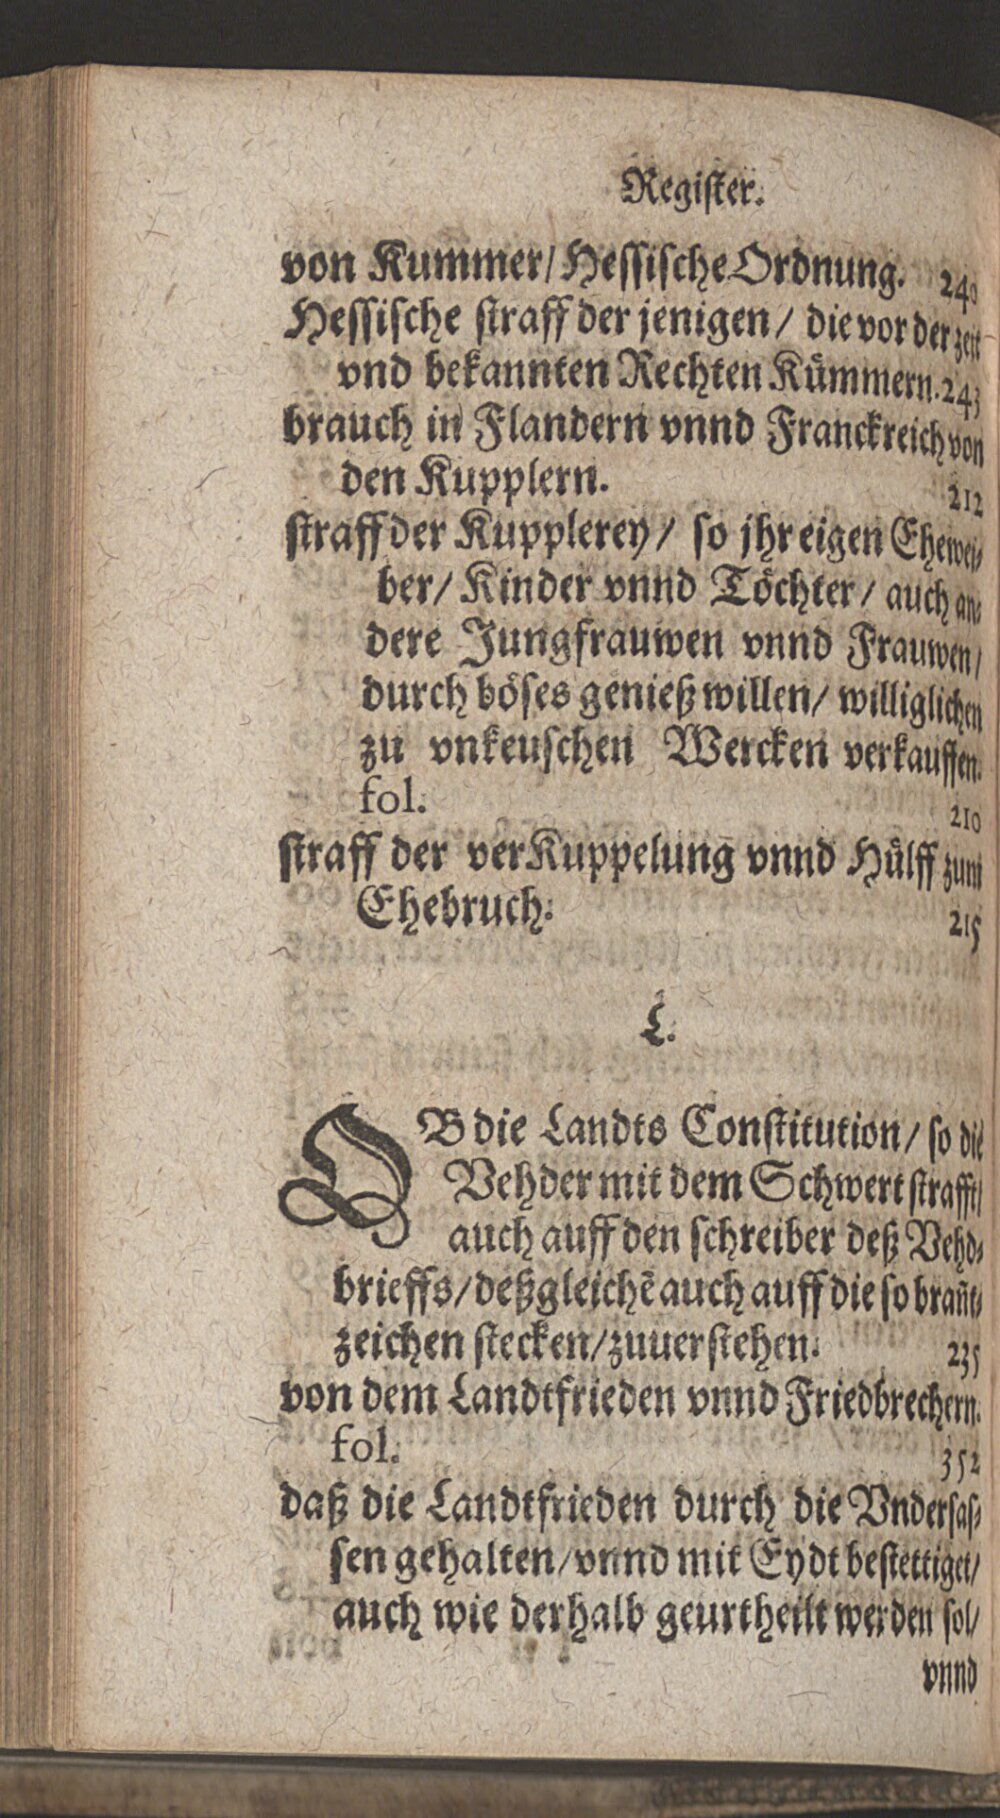 Register.
von Kummer/Hessische Ordnung. 240
Hessische straff der jenigen/ die vor der zeit
vnd bekannten Rechten Kümmern. 243
brauch in Flandern vnnd Franckreich von
den Kupplern. 212
straff der Kupplerey/ so jhr eigen Ehewei-
ber/ Kinder vnnd Töchter/ auch an-
dere Jungfrauwen vnnd Frauwen/
durch böses genieß willen/ williglichen
zu vnkeuschen Wercken verkauffen.
fol. 210
straff der verKuppelung vnnd Hülff zum
Ehebruch. 215
L.
OB die Landts Constitution/ so die
Vehder mit dem Schwert strafft/
auch auff den schreiber deß Vehd-
brieffs/ deßgleichē auch auff die so brañt-
zeichen stecken/zuuerstehen. 235
von dem Landtfrieden vnnd Friedbrechern.
fol. 352
daß die Landtfrieden durch die Vndersas-
sen gehalten/vnnd mit Eydt bestettiget/
auch wie derhalb geurtheilt werden sol/
vnnd